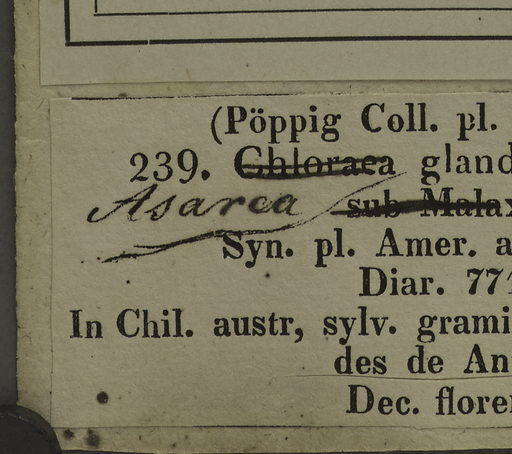 (Pöppig Coll. pl.
239. Chloraea gland
Asarca sub Malax
Syn. pl. Amer. a
Diar. 771
In Chil. austr, sylv. grami
des de An
Dec. flore